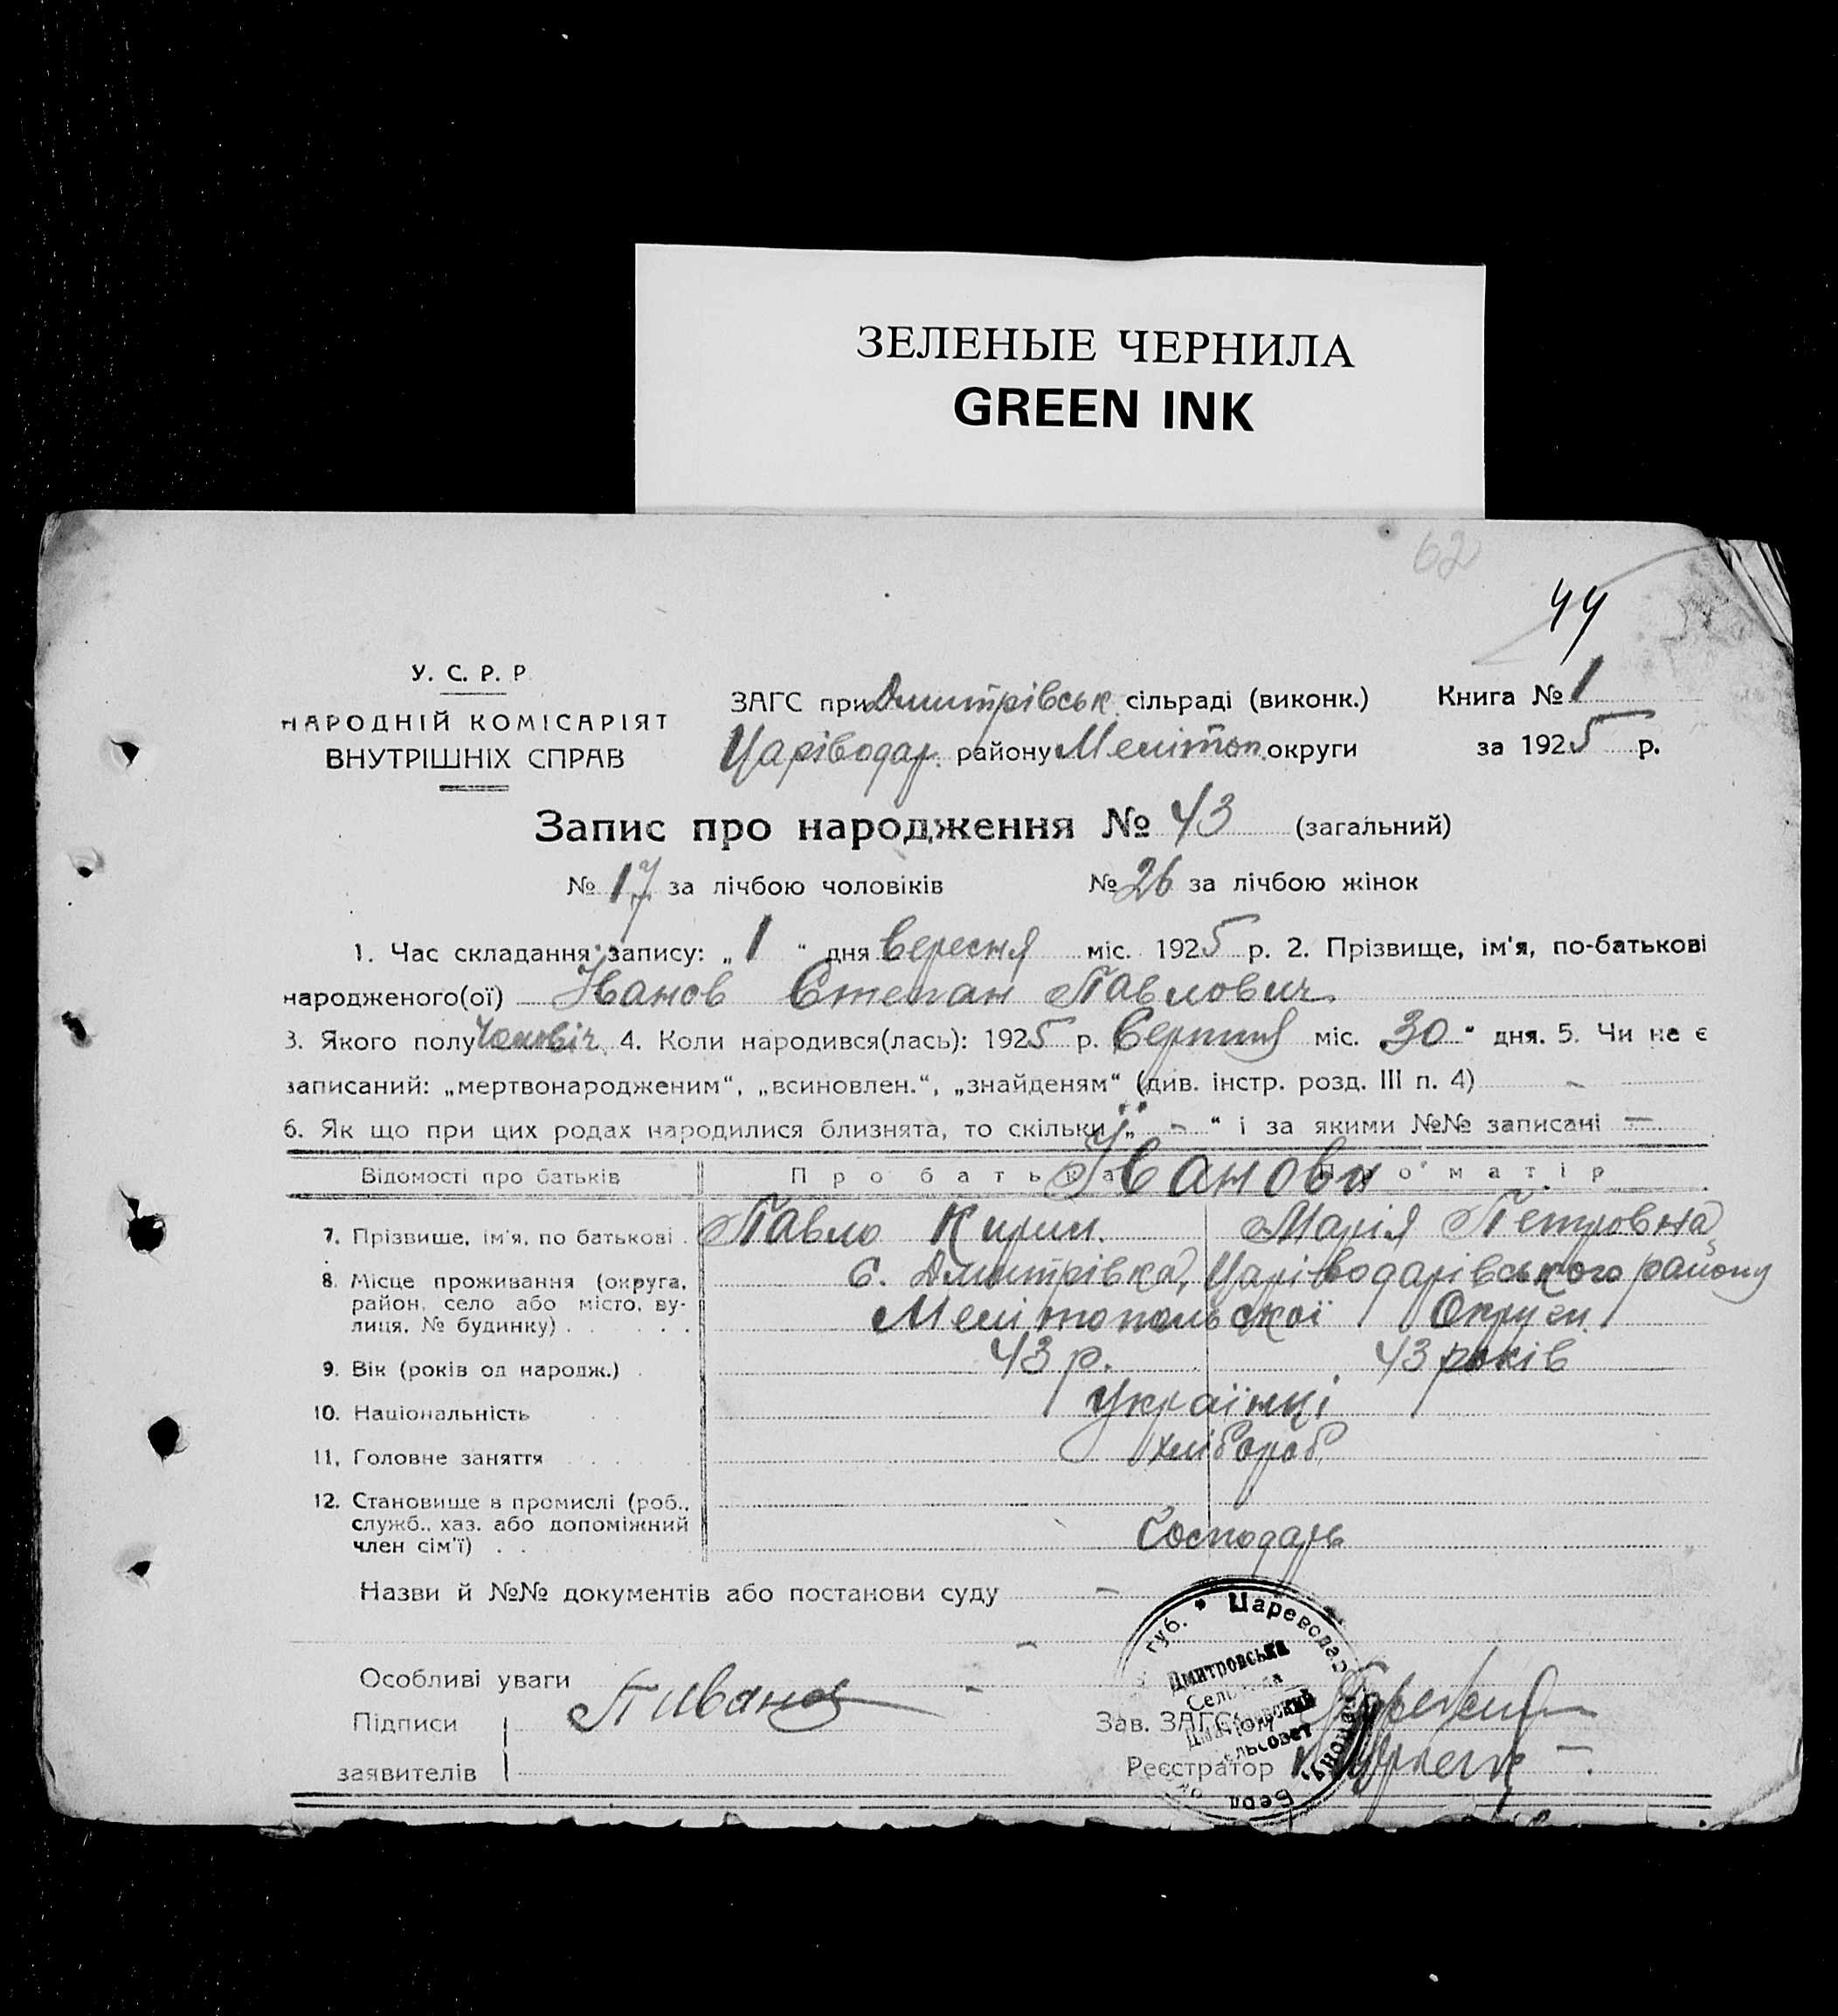 ЗЕЛЕНЫЕ ЧЕРНИЛА
GREEN INK
62
44
У. С. Р. Р.
НАРОДНІЙ КОМІСАРІЯТ
ВНУТРІШНІХ СПРАВ
ЗАГС при Дмитрівськ. сільраді (виконк.) Книга № 1
Царіводар. району Мелітоп. округи за 1925 р.
Запис про народження № 43 (загальний)
№ 17 за лічбою чоловіків № 26 за лічбою жінок
1. Час складання запису: „ 1 “ дня вересня міс. 1925 р. 2. Прізвище, ім'я, по-батькові
народженого(ої) Іванов Степан Павлович
3. Якого полу чоловіч. 4. Коли народився(лась): 1925 р. Серпня міс. „30“ дня. 5. Чи не є
записаний: „мертвонародженим“, „всиновлен.“, „знайденям“ (див. інстр. розд. III п. 4) -
6. Як що при цих родах народилися близнята, то скільки „ - “ і за якими №№ записані —
Відомості про батьків Про батька Про матір
Іванови
7. Прізвище, ім'я, по батькові . Павло Кирил. Марія Петровна
8. Місце проживання (округа, район, село або місто, вулиця, № будинку) . . . . . с. Дмитрівка, Царіводарівського району
Мелітопольської Округи
9. Вік (років од народж.) . 43 р. 43 років
10. Національність Українці
11. Головне заняття хлібороб
12. Становище в промислі (роб.,
служб., хаз. або допоміжний
член сім'ї) . . Господарь
Назви й №№ документів або постанови суду -
Особливі уваги -
Підписи П Иванов
заявителів
Зав. ЗАГС'ом
Реєстратор
губ. • Цареводар
Дмитровська
Сельрада
Дмитровский
сельсовет
району
Берд